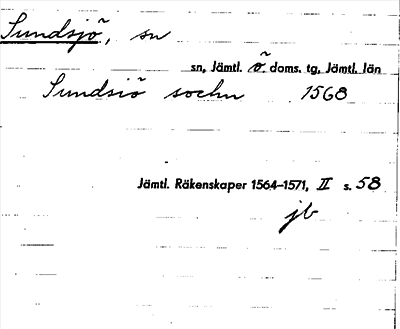 Sundsjö, sn
sn, Jämtl. ö. doms. tg, Jämtl. län
Sundsiö sochn 1568
Jämtl. Räkenskaper 1564–1571, II s. 58
jb